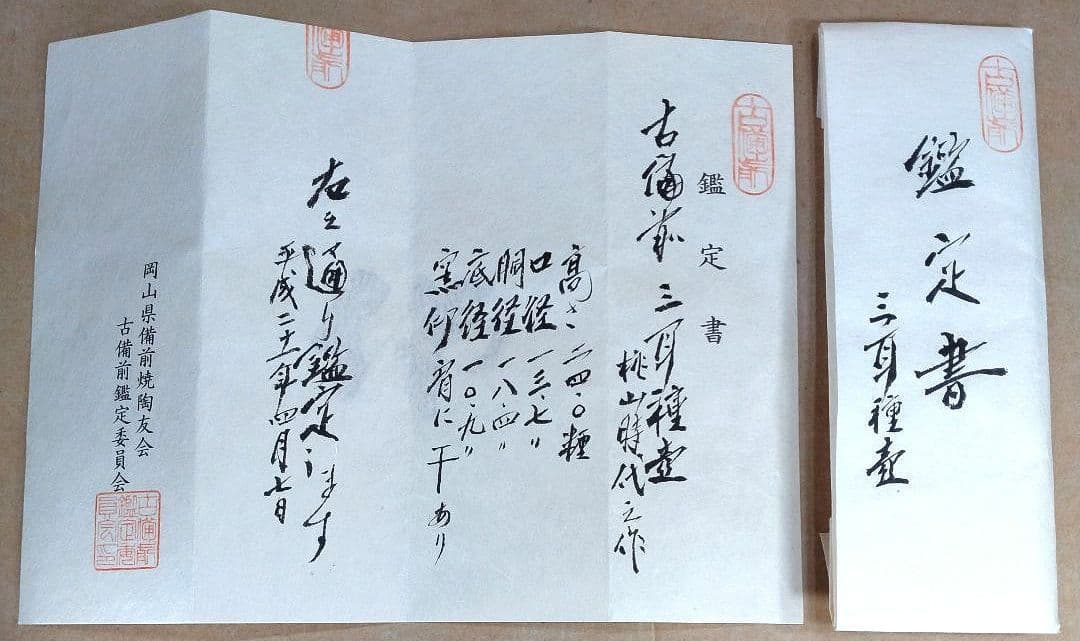 古備前
鑑定書
三耳種壷
古備前
鑑定書
古備前 三耳種壷
桃山時代之作
高さ 二四・〇糎
口径 一三・七〃
胴径 一八・四〃
底径 一〇・九〃
窯印 肩に 干 あり
備前
右之通り鑑定します
平成二十一年四月七日
岡山県備前焼陶友会
古備前鑑定委員会
古備前
鑑定委
員会印